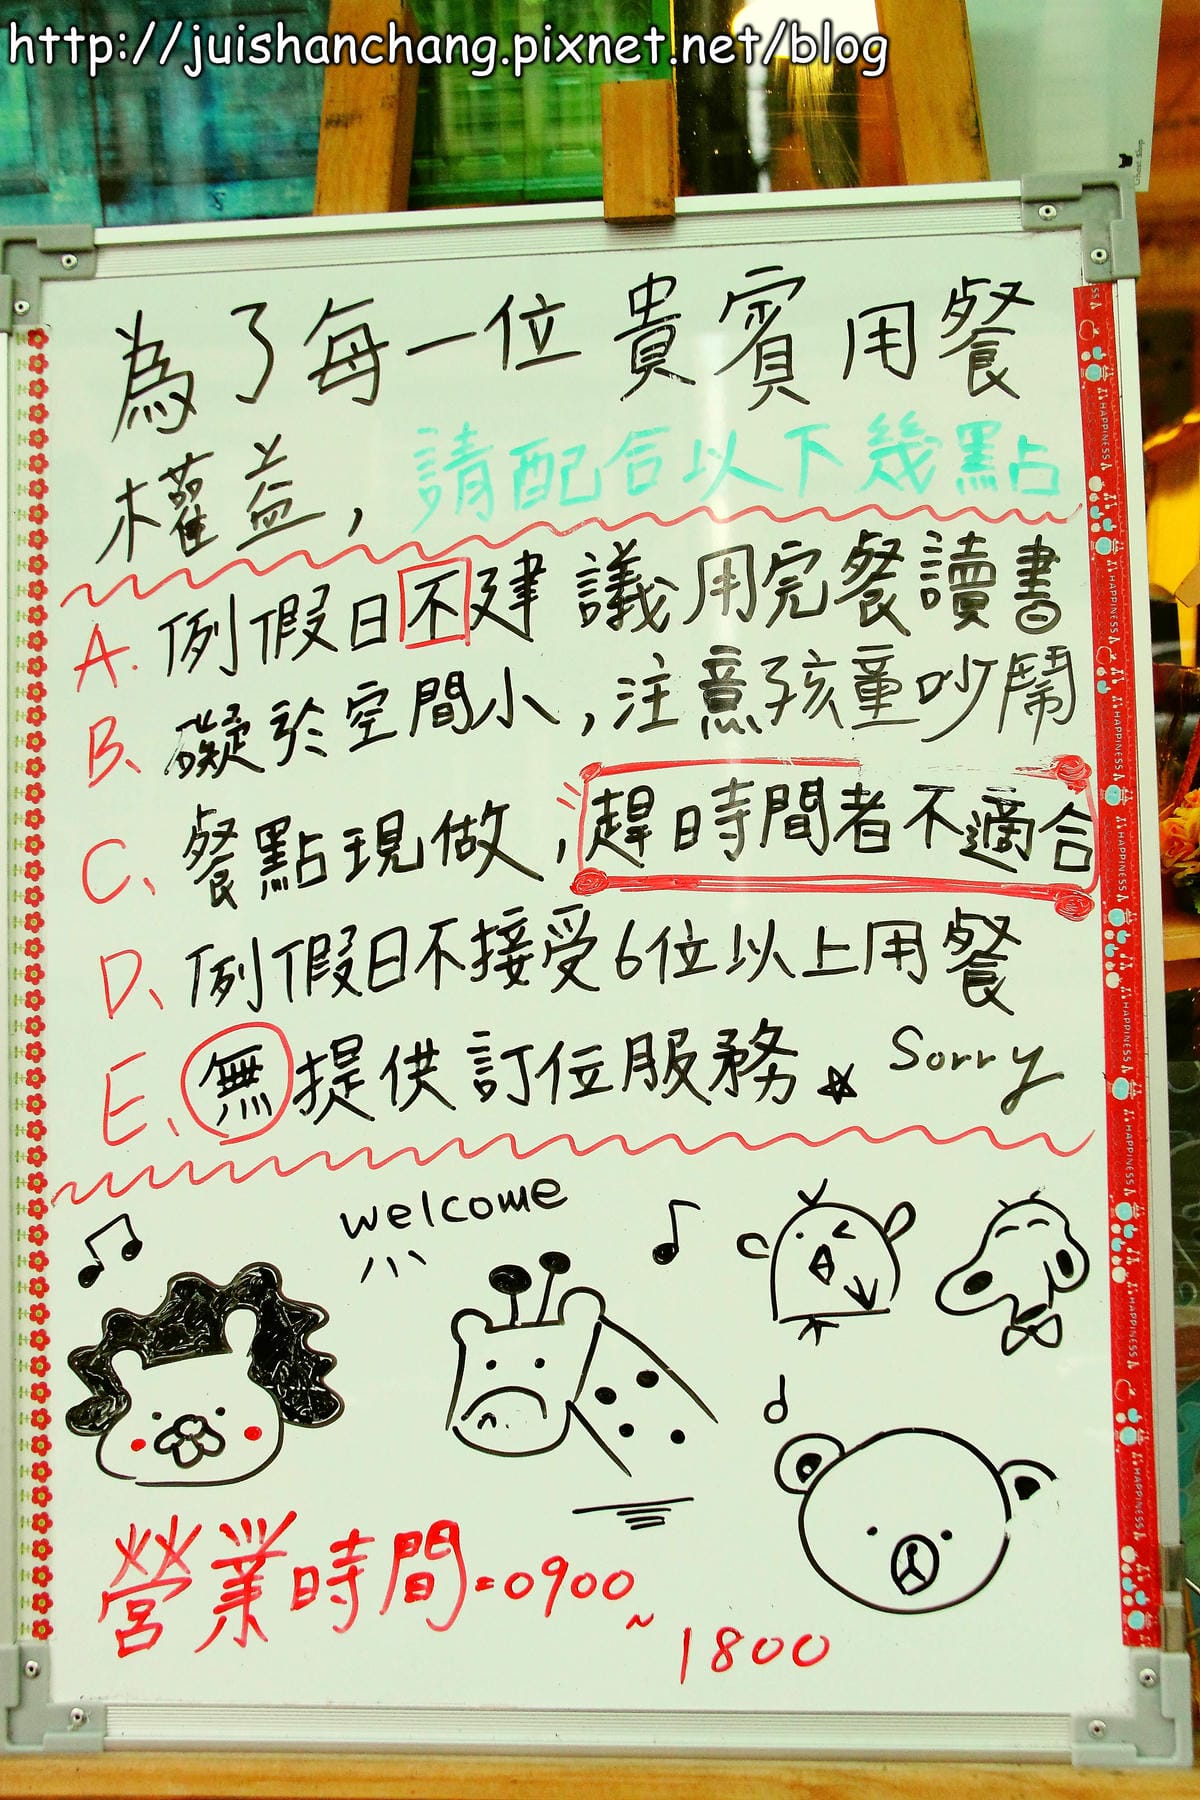 http://juishanchang.pixnet.net/blog
Ghost Shop
為了每一位貴賓用餐
權益,請配合以下幾點
A.例假日不建議用完餐讀書
B、礙於空間小,注意孩童吵鬧
C、餐點現做,趕時間者不適合
D、例假日不接受6位以上用餐
E、無提供訂位服務。Sorry
welcome
營業時間=0900~
1800
HAPPINESS
HAPPINESS
HAPPINESS
HAPPINESS
HAPPINESS
HAPPINESS
HAPPINESS
HAPPINESS